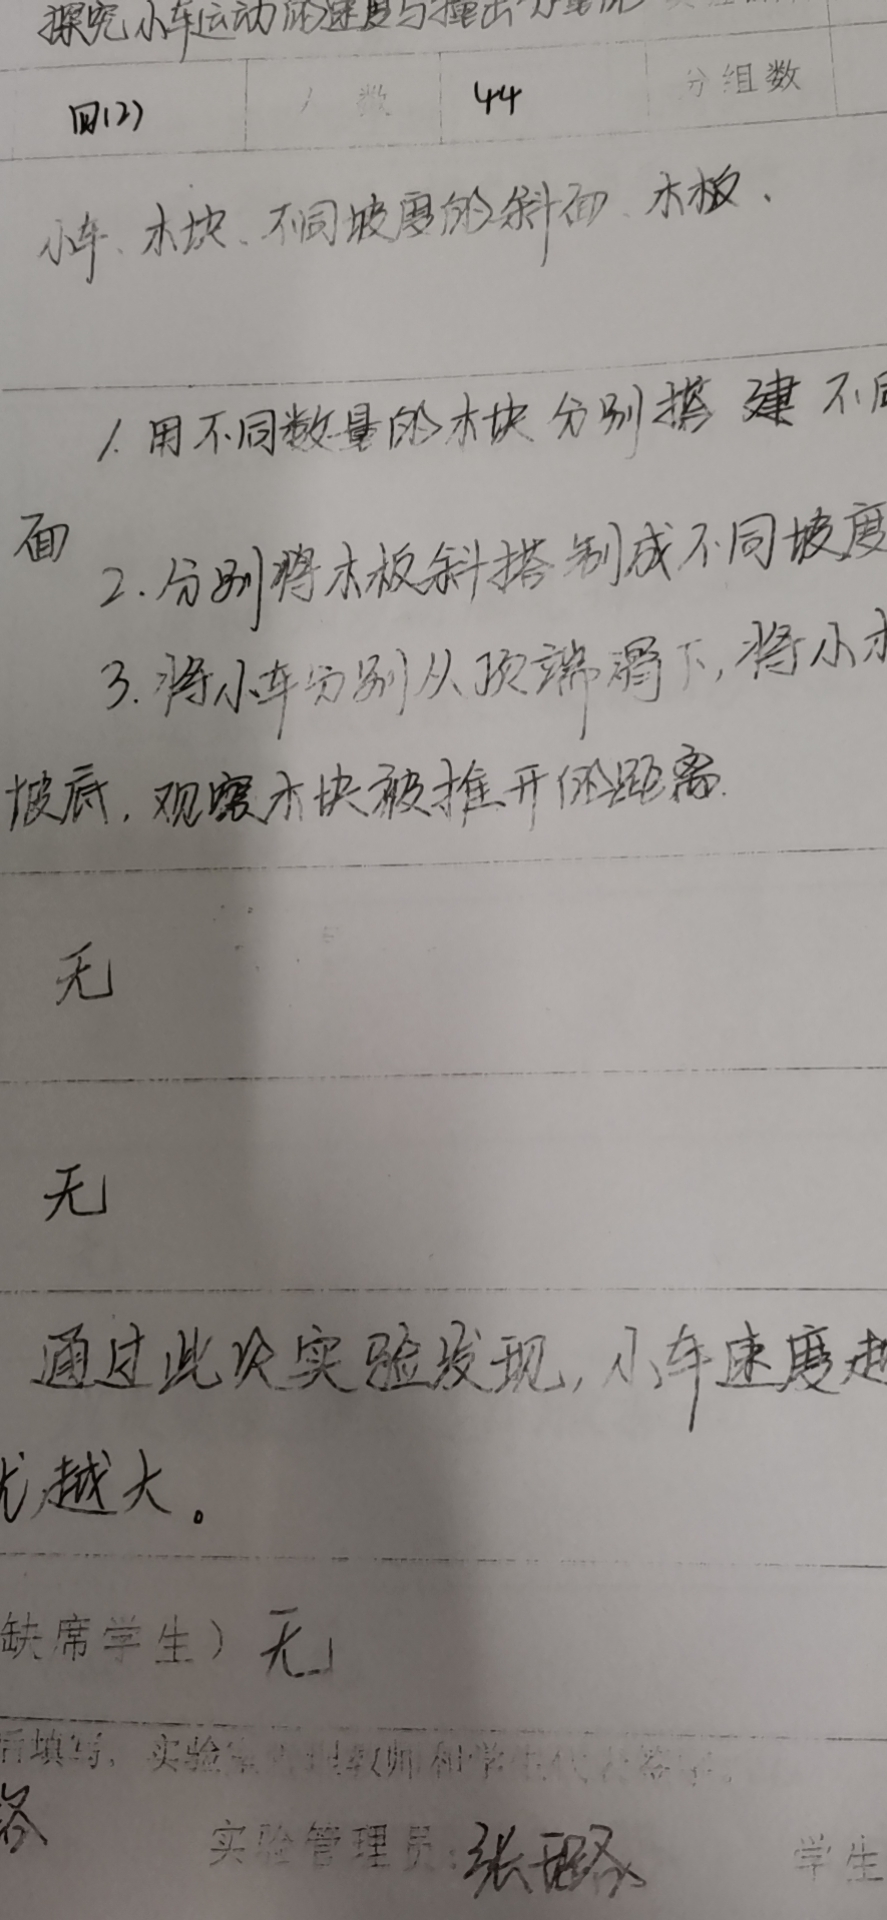 探究小车运动的速度与撞击力
四(2) 人数 44 分组数
小车、木块、不同坡度的斜面、木板.
1.用不同数量的木块分别搭建不同
面
2.分别将木板斜搭制成不同坡度
3.将小车分别从顶端滑下,将小木
坡底,观察木块被推开的距离.
无
无
通过此次实验发现,小车速度越
越大。
缺席学生) 无
后填写,实验室管理教师和学生代表签字。
实验管理员: 张璐 学生